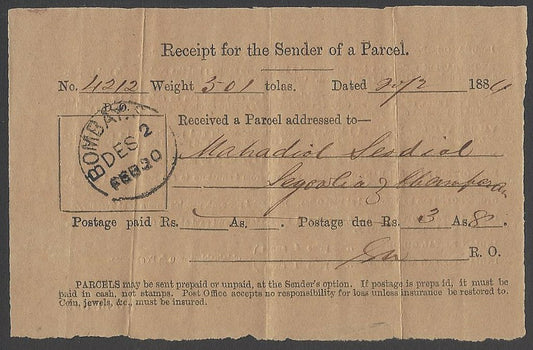 Receipt for the Sender of a Parcel.
No. 4212 Weight 301 tolas. Dated 188
BOMBAY
DES 2
FEB 20
Received a Parcel addressed to—
Mahadiol Sesdiol
Segowlia Champaran
Postage paid Rs. As. Postage due Rs. 3 As 8.
R. O.
PARCELS may be sent prepaid or unpaid, at the Sender's option. If postage is prepaid, it must be
paid in cash, not stamps. Post Office accepts no responsibility for loss unless insurance be restored to.
Coin, jewels, &c., must be insured.